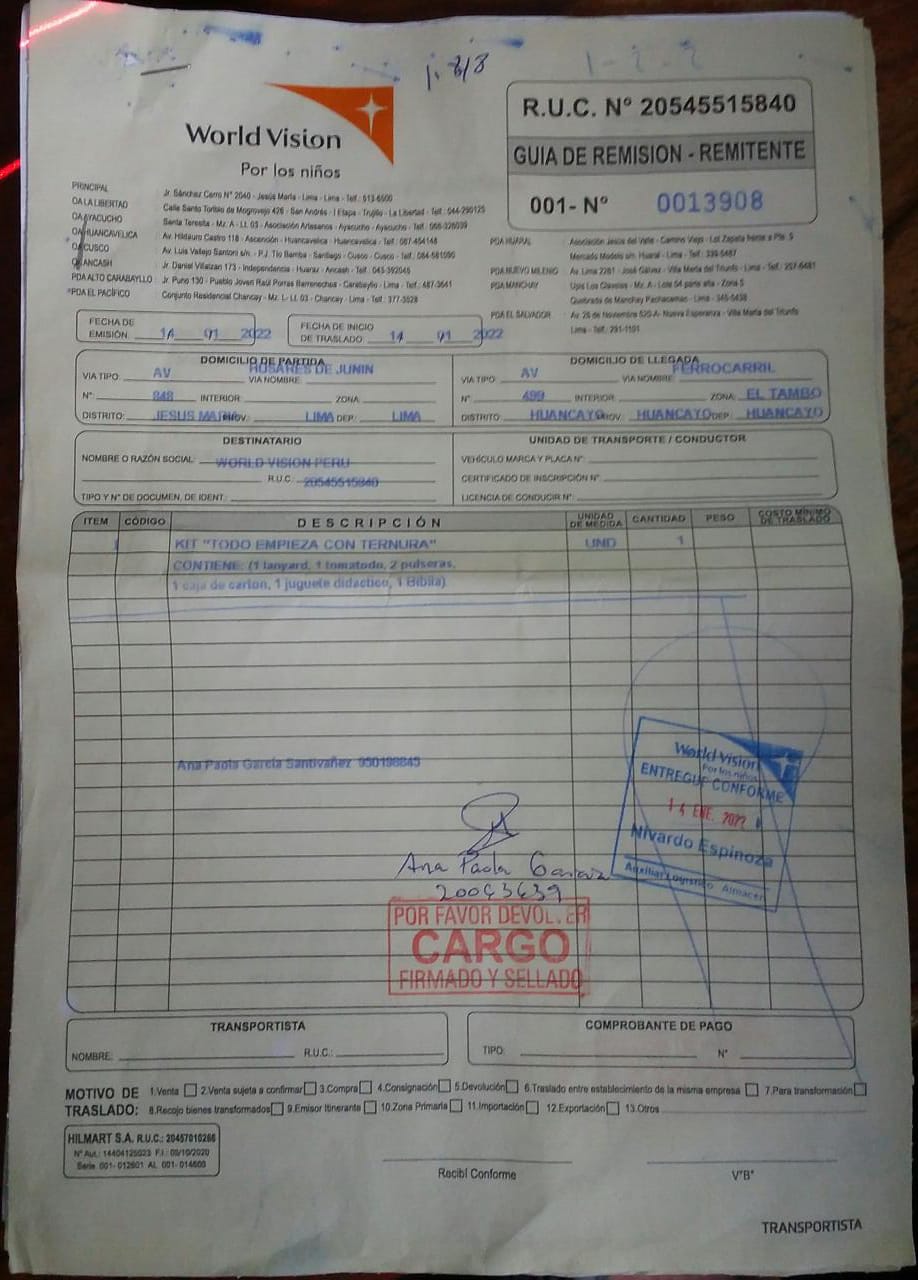 1.318
World Vision
Por los niños
R.U.C. N° 20545515840
GUIA DE REMISION - REMITENTE
001- N° 0013908
PRINCIPAL Jr. Sánchez Cerro N° 2040 - Jesús María - Lima - Lima - Telf.: 613-6500
OA LA LIBERTAD Calle Santo Toribio de Mogrovejo 426 - San Andrés - I Etapa - Trujillo - La Libertad - Telf.: 044-290125
OA AYACUCHO Santa Teresita - Mz. A - Lt. 03 - Asociación Artesanos - Ayacucho - Ayacucho - Telf.:
OA HUANCAVELICA Av. Hildauro Castro 118 - Ascención - Huancavelica - Huancavelica - Telf.: 067-454148
OA CUSCO Av. Luis Vallejo Santoni s/n. - P.J. Tío Bamba - Santiago - Cusco - Cusco - Telf.:
OA ANCASH Jr. Daniel Villaizan 173 - Independencia - Huaraz - Ancash - Telf.: 043-392045
PDA ALTO CARABAYLLO Jr. Puno 130 - Pueblo Joven Raúl Porras Barrenechea - Carabayllo - Lima - Telf.: 487-3641
PDA EL PACÍFICO Conjunto Residencial Chancay - Mz. L - Lt. 03 - Chancay - Lima - Telf.: 377-3528
PDA HUARAL Asociación Jesús del Valle - Camino Viejo - Lot Zapata frente a Pte. 5
Mercado Modelo s/n. Huaral - Lima - Telf.:
PDA NUEVO MILENIO Av. Lima 2281 - José Gálvez - Villa María del Triunfo - Lima - Telf.:
PDA MANCHAY Upis Los Claveles - Mz. A - Lote 54 parte alta - Zona 5
Quebrada de Manchay Pachacamac - Lima -
PDA EL SALVADOR Av. 26 de Noviembre Nueva Esperanza - Villa María del Triunfo
Lima - Telf.: 291-1191
FECHA DE EMISIÓN: 14 01 2022
FECHA DE INICIO DE TRASLADO: 14 01 2022
DOMICILIO DE PARTIDA
VIA TIPO: AV VIA NOMBRE HUSARES DE JUNIN
N°: 848 INTERIOR ZONA
DISTRITO: JESUS MARIA PROV.: LIMA DEP.: LIMA
DOMICILIO DE LLEGADA
VIA TIPO: AV VIA NOMBRE FERROCARRIL
N°: 499 INTERIOR ZONA: EL TAMBO
DISTRITO: HUANCAYO PROV.: HUANCAYO DEP.: HUANCAYO
DESTINATARIO
NOMBRE O RAZÓN SOCIAL: WORLD VISION PERU
R.U.C.: 20545515840
TIPO Y N° DE DOCUMEN. DE IDENT.:
UNIDAD DE TRANSPORTE / CONDUCTOR
VEHÍCULO MARCA Y PLACA N°:
CERTIFICADO DE INSCRIPCIÓN N°:
LICENCIA DE CONDUCIR N°:
ITEM CÓDIGO DESCRIPCIÓN UNIDAD DE MEDIDA CANTIDAD PESO COSTO MÍNIMO DE TRASLADO
1 KIT "TODO EMPIEZA CON TERNURA" UND 1
CONTIENE: (1 lanyard, 1 tomatodo, 2 pulseras,
1 caja de carton, 1 juguete didactico, 1 Biblia)
Ana Paola García Santivañez 950198845
World Vision
Por los niños
ENTREGUE CONFORME
14 ENE. 2022
Nivardo Espinoza
Auxiliar Logístico Almacén
Ana Paola Garcia
20043639
POR FAVOR DEVOLVER
CARGO
FIRMADO Y SELLADO
TRANSPORTISTA
NOMBRE: R.U.C.:
COMPROBANTE DE PAGO
TIPO: N°
MOTIVO DE TRASLADO: 1.Venta 2.Venta sujeta a confirmar 3.Compra 4.Consignación 5.Devolución 6.Traslado entre establecimiento de la misma empresa 7.Para transformación
8.Recojo bienes transformados 9.Emisor Itinerante 10.Zona Primaria 11.Importación 12.Exportación 13.Otros
HILMART S.A. R.U.C.: 20457010266
N° Aut.: 14404125023 F.I.: 09/10/2020
Serie 001- 012601 AL 001- 014600
Recibí Conforme
V°B°
TRANSPORTISTA